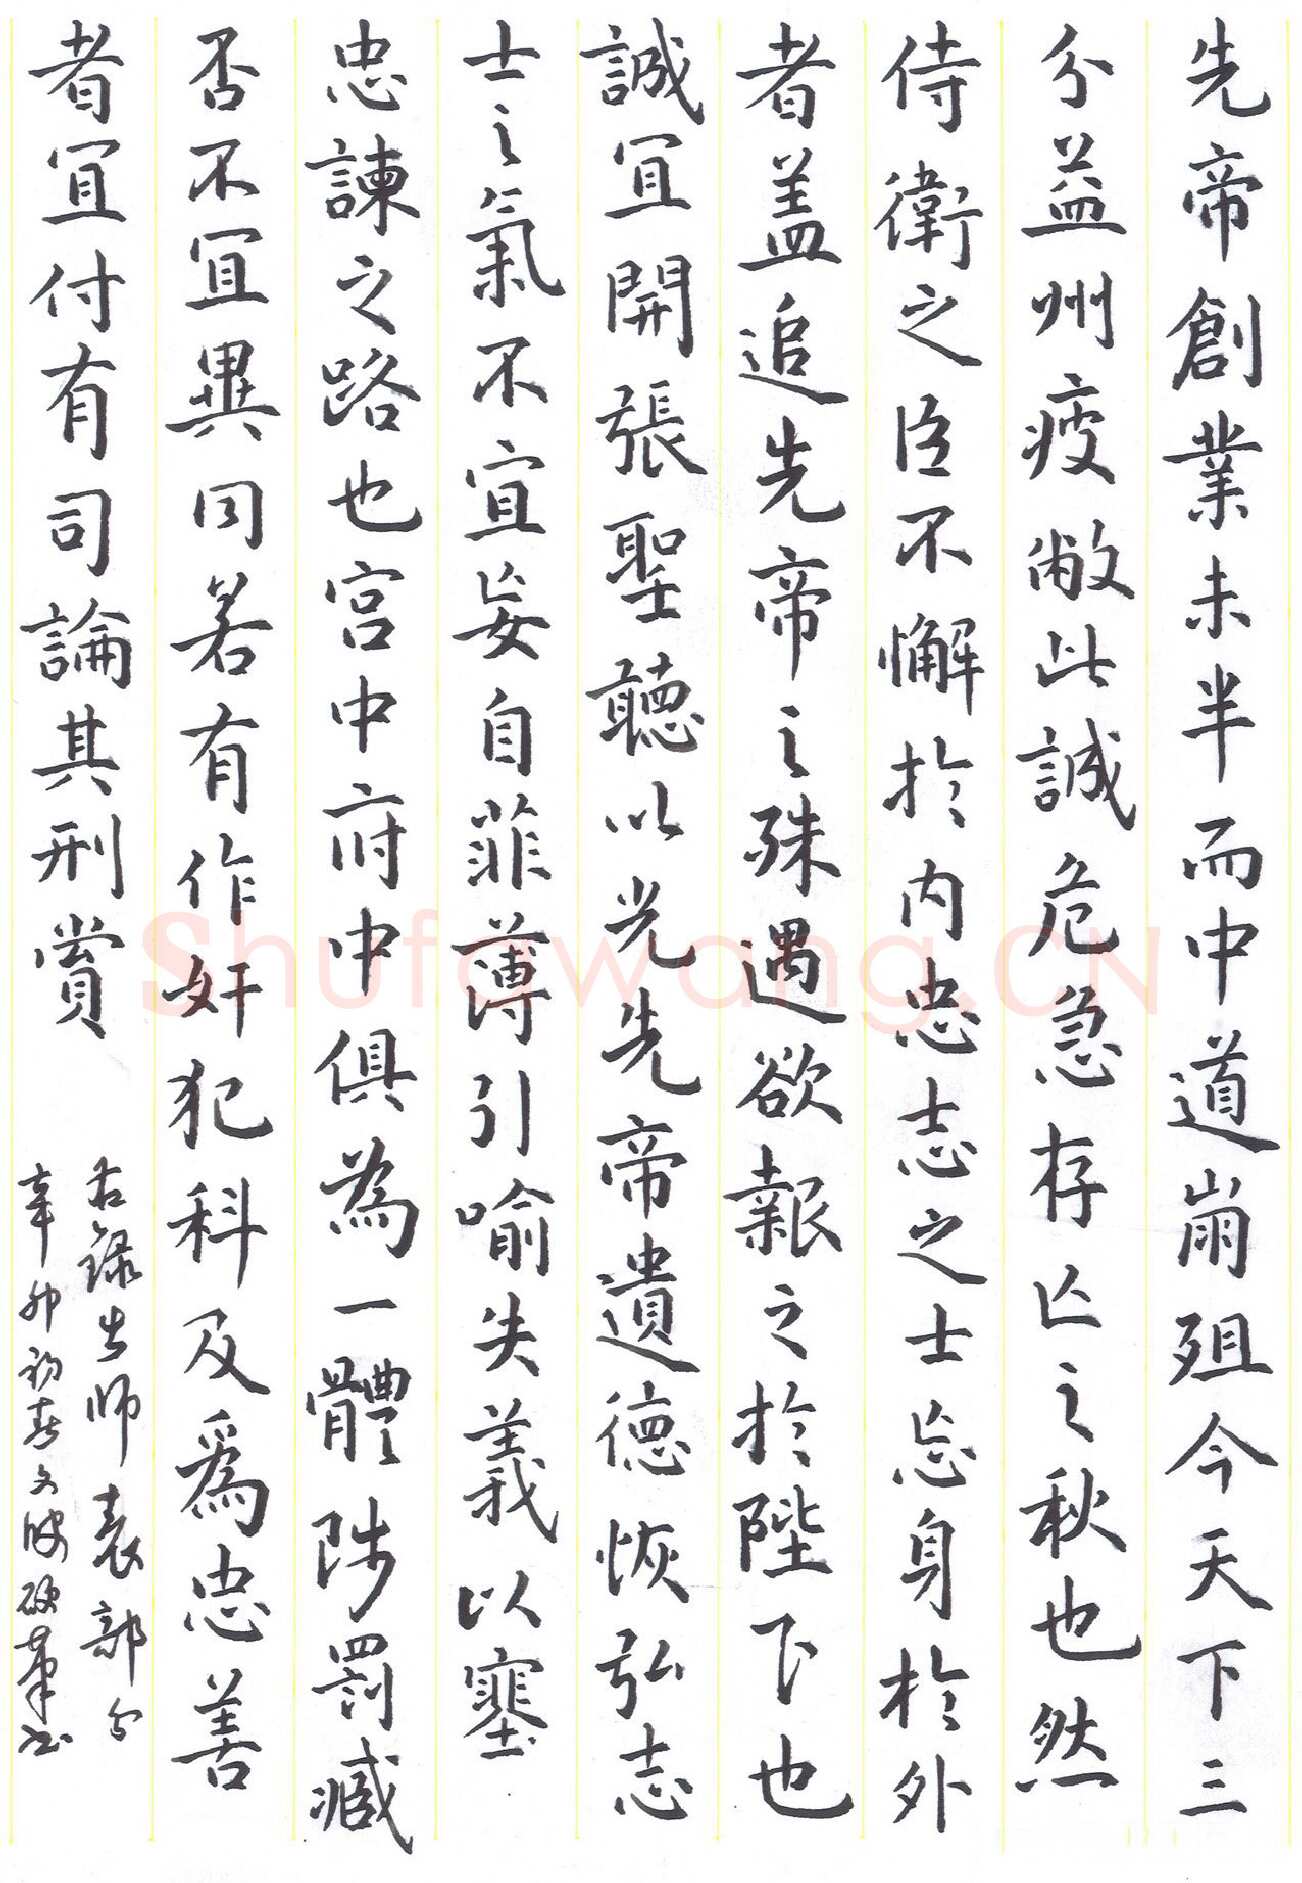 先帝創業未半而中道崩殂今天下三
分益州疲敝此誠危急存亡之秋也然
侍衛之臣不懈於内忠志之士忘身於外
者盖追先帝之殊遇欲報之於陛下也
誠宜開張聖聽以光先帝遺德恢弘志
士之氣不宜妄自菲薄引喻失義以塞
忠諫之路也宮中府中俱為一體陟罰臧
否不宜異同若有作奸犯科及爲忠善
者宜付有司論其刑賞
右錄出師表部分
辛卯初春文波硬筆書
Shufawang.CN